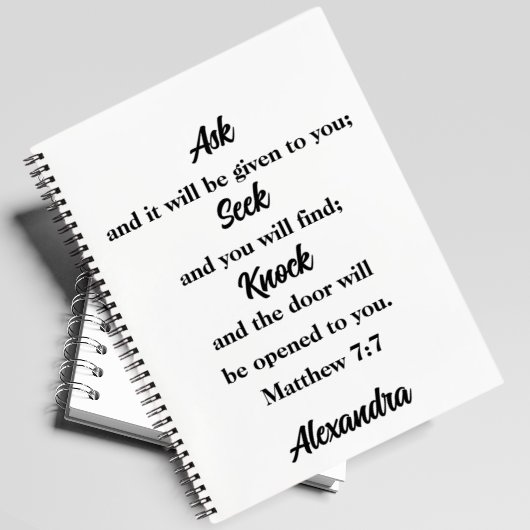 Ask
and it will be given to you;
Seek
and you will find;
Knock
and the door will
be opened to you.
Matthew 7:7
Alexandra